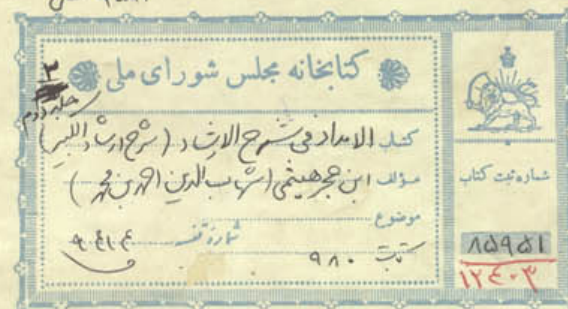 کتابخانه مجلس شورای ملی
۳
جلد دوم
کتاب الامداد فی شرح الارشاد (شرح ارشاد الکبیر)
مؤلف ابن حجر هیتمی (شهاب الدین احمد بن محمد)
موضوع
شماره قفسه
کتابت ۹۸۰
شماره ثبت کتاب
۸۵۹۵۱
۱۲۴۰۳